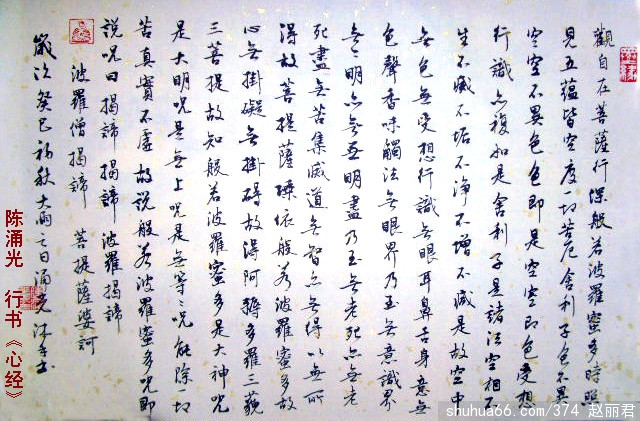 觀自在菩薩行深般若波羅蜜多時照
見五蘊皆空度一切苦厄舍利子色不異
空空不異色色即是空空即色受想
行識亦複如是舍利子是諸法空相不
生不滅不垢不淨不增不減是故空中
無色無受想行識無眼耳鼻舌身意無
色聲香味觸法無眼界乃至無意識界
無無明亦無無明盡乃至無老死亦無老
死盡無苦集滅道無智亦無得以無所
得故菩提薩埵依般若波羅蜜多故
心無掛礙無掛碍故得阿耨多羅三藐
三菩提故知般若波羅蜜多是大神咒
是大明咒是無上咒是無等等咒能除一切
苦真實不虛故説般若波羅蜜多咒即
說咒曰 揭諦 揭諦 波羅揭諦
波羅僧揭諦 菩提薩婆訶
歲次癸巳初秋大雨之日涌光沐手
陈涌光 行书《心经》
shuhua66.com/374 赵丽君